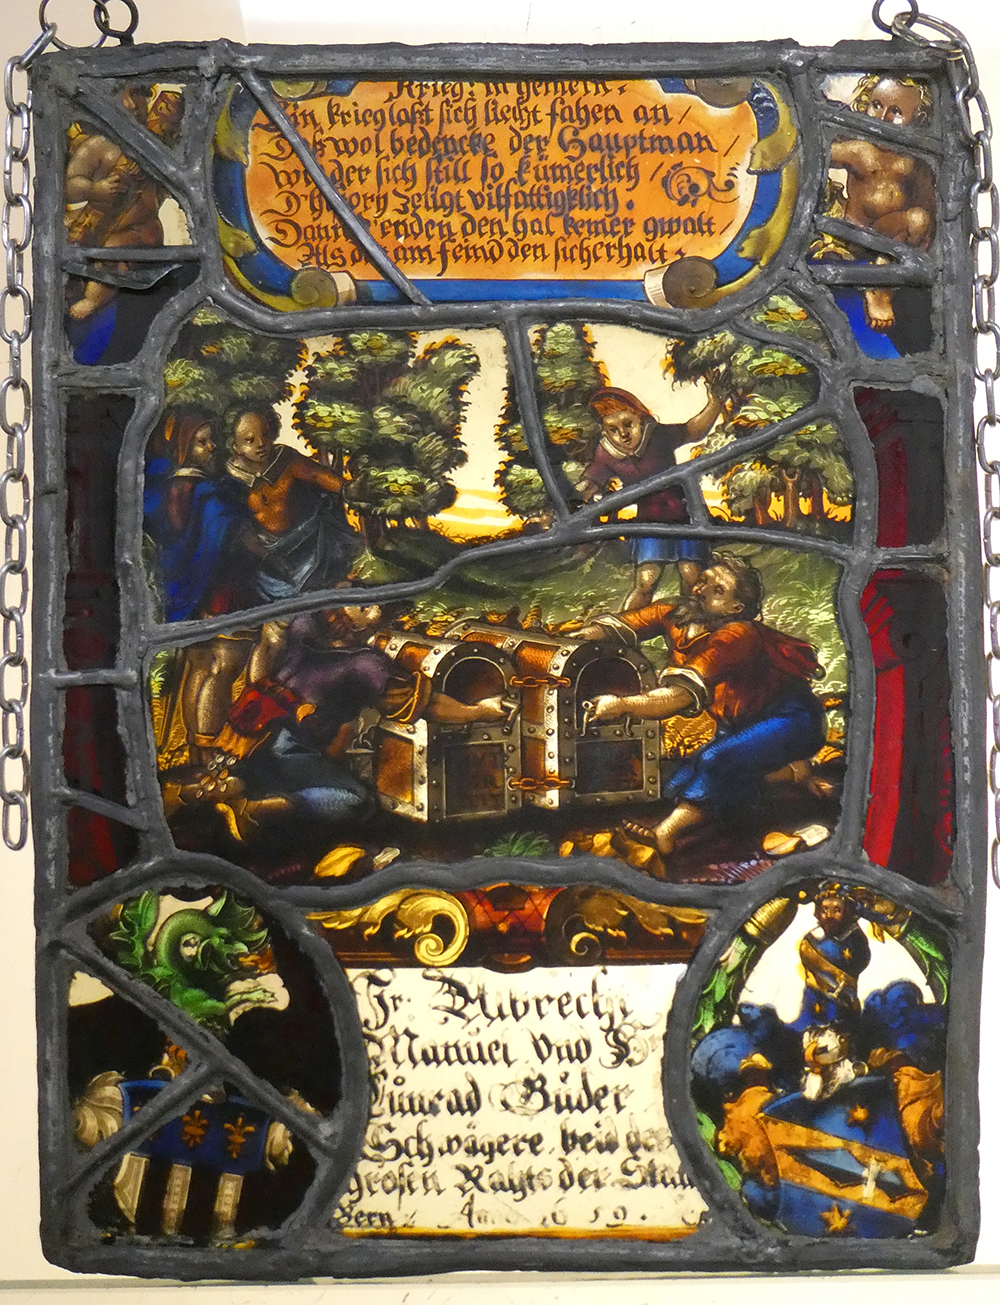 Krieg in gemein:
Ein krieg laßt sich liecht fahen an /
wol bedencke der Hauptman /
der sich still so kümerlich /
Thieory zeligt vilfaltigklich:
enden den hat keiner gwalt /
Als am feind den sicherhalt.
Hr. Albrecht
Manuel vnd Hr
Cunrad Güder
Schwägere, beid des
grosen Rahts der Statt
Bern Anno 1659.